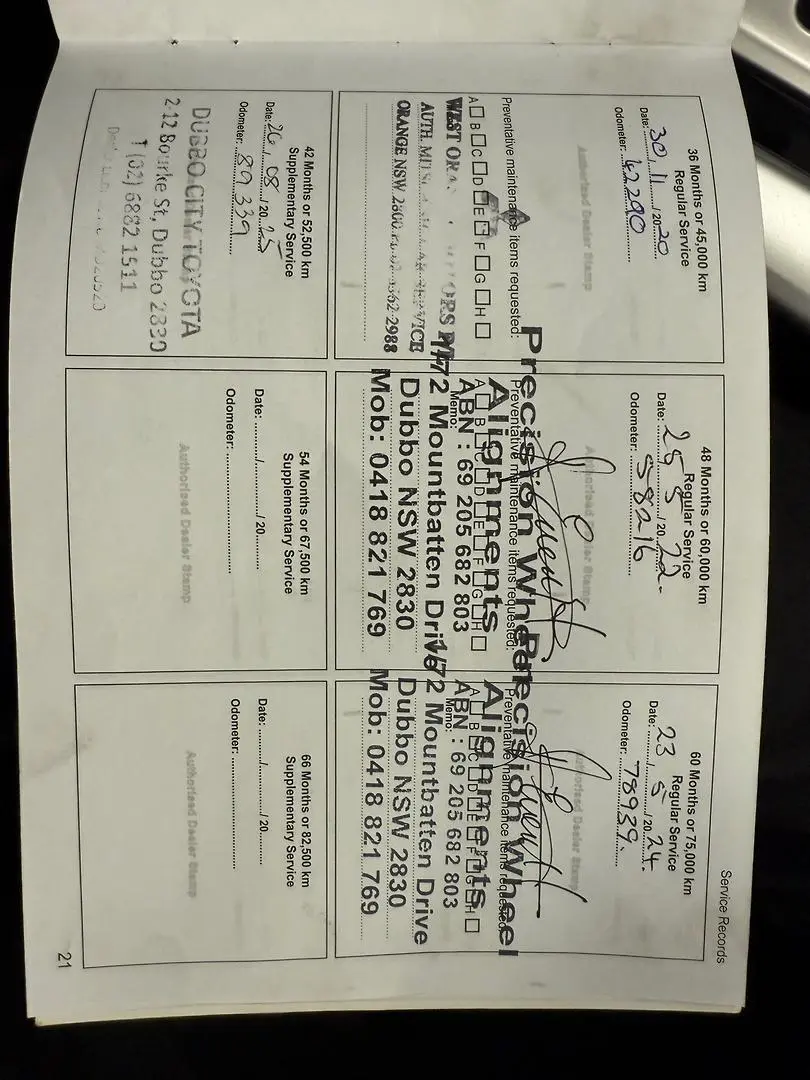 Service Records
36 Months or 45,000 km
Regular Service
Date: 30 / 11 / 20 20
Odometer: 42290
Authorised Dealer Stamp
Preventative maintenance items requested:
A B C D E F G H
WEST ORA
ORS P/L
ORANGE NSW 2800
2988
48 Months or 60,000 km
Regular Service
Date: 25 / 5 / 20 22.
Odometer: 58216
Authorised Dealer Stamp
Preventative maintenance items requested:
A B C D E F G H
Memo:
Precision Wheel
Alignments
ABN : 69 205 682 803
1/72 Mountbatten Drive
Dubbo NSW 2830
Mob: 0418 821 769
60 Months or 75,000 km
Regular Service
Date: 23 / 5 / 20 24.
Odometer: 78939.
Authorised Dealer Stamp
Preventative maintenance items requested:
A B C D E F G H
Memo:
Precision Wheel
Alignments
ABN : 69 205 682 803
1/72 Mountbatten Drive
Dubbo NSW 2830
Mob: 0418 821 769
42 Months or 52,500 km
Supplementary Service
Date: 26 / 08 / 20 25
Odometer: 89339
DUBBO CITY TOYOTA
2-12 Bourke St, Dubbo 2830
T (02) 6882 1511
54 Months or 67,500 km
Supplementary Service
Date: / / 20
Odometer:
Authorised Dealer Stamp
66 Months or 82,500 km
Supplementary Service
Date: / / 20
Odometer:
Authorised Dealer Stamp
21